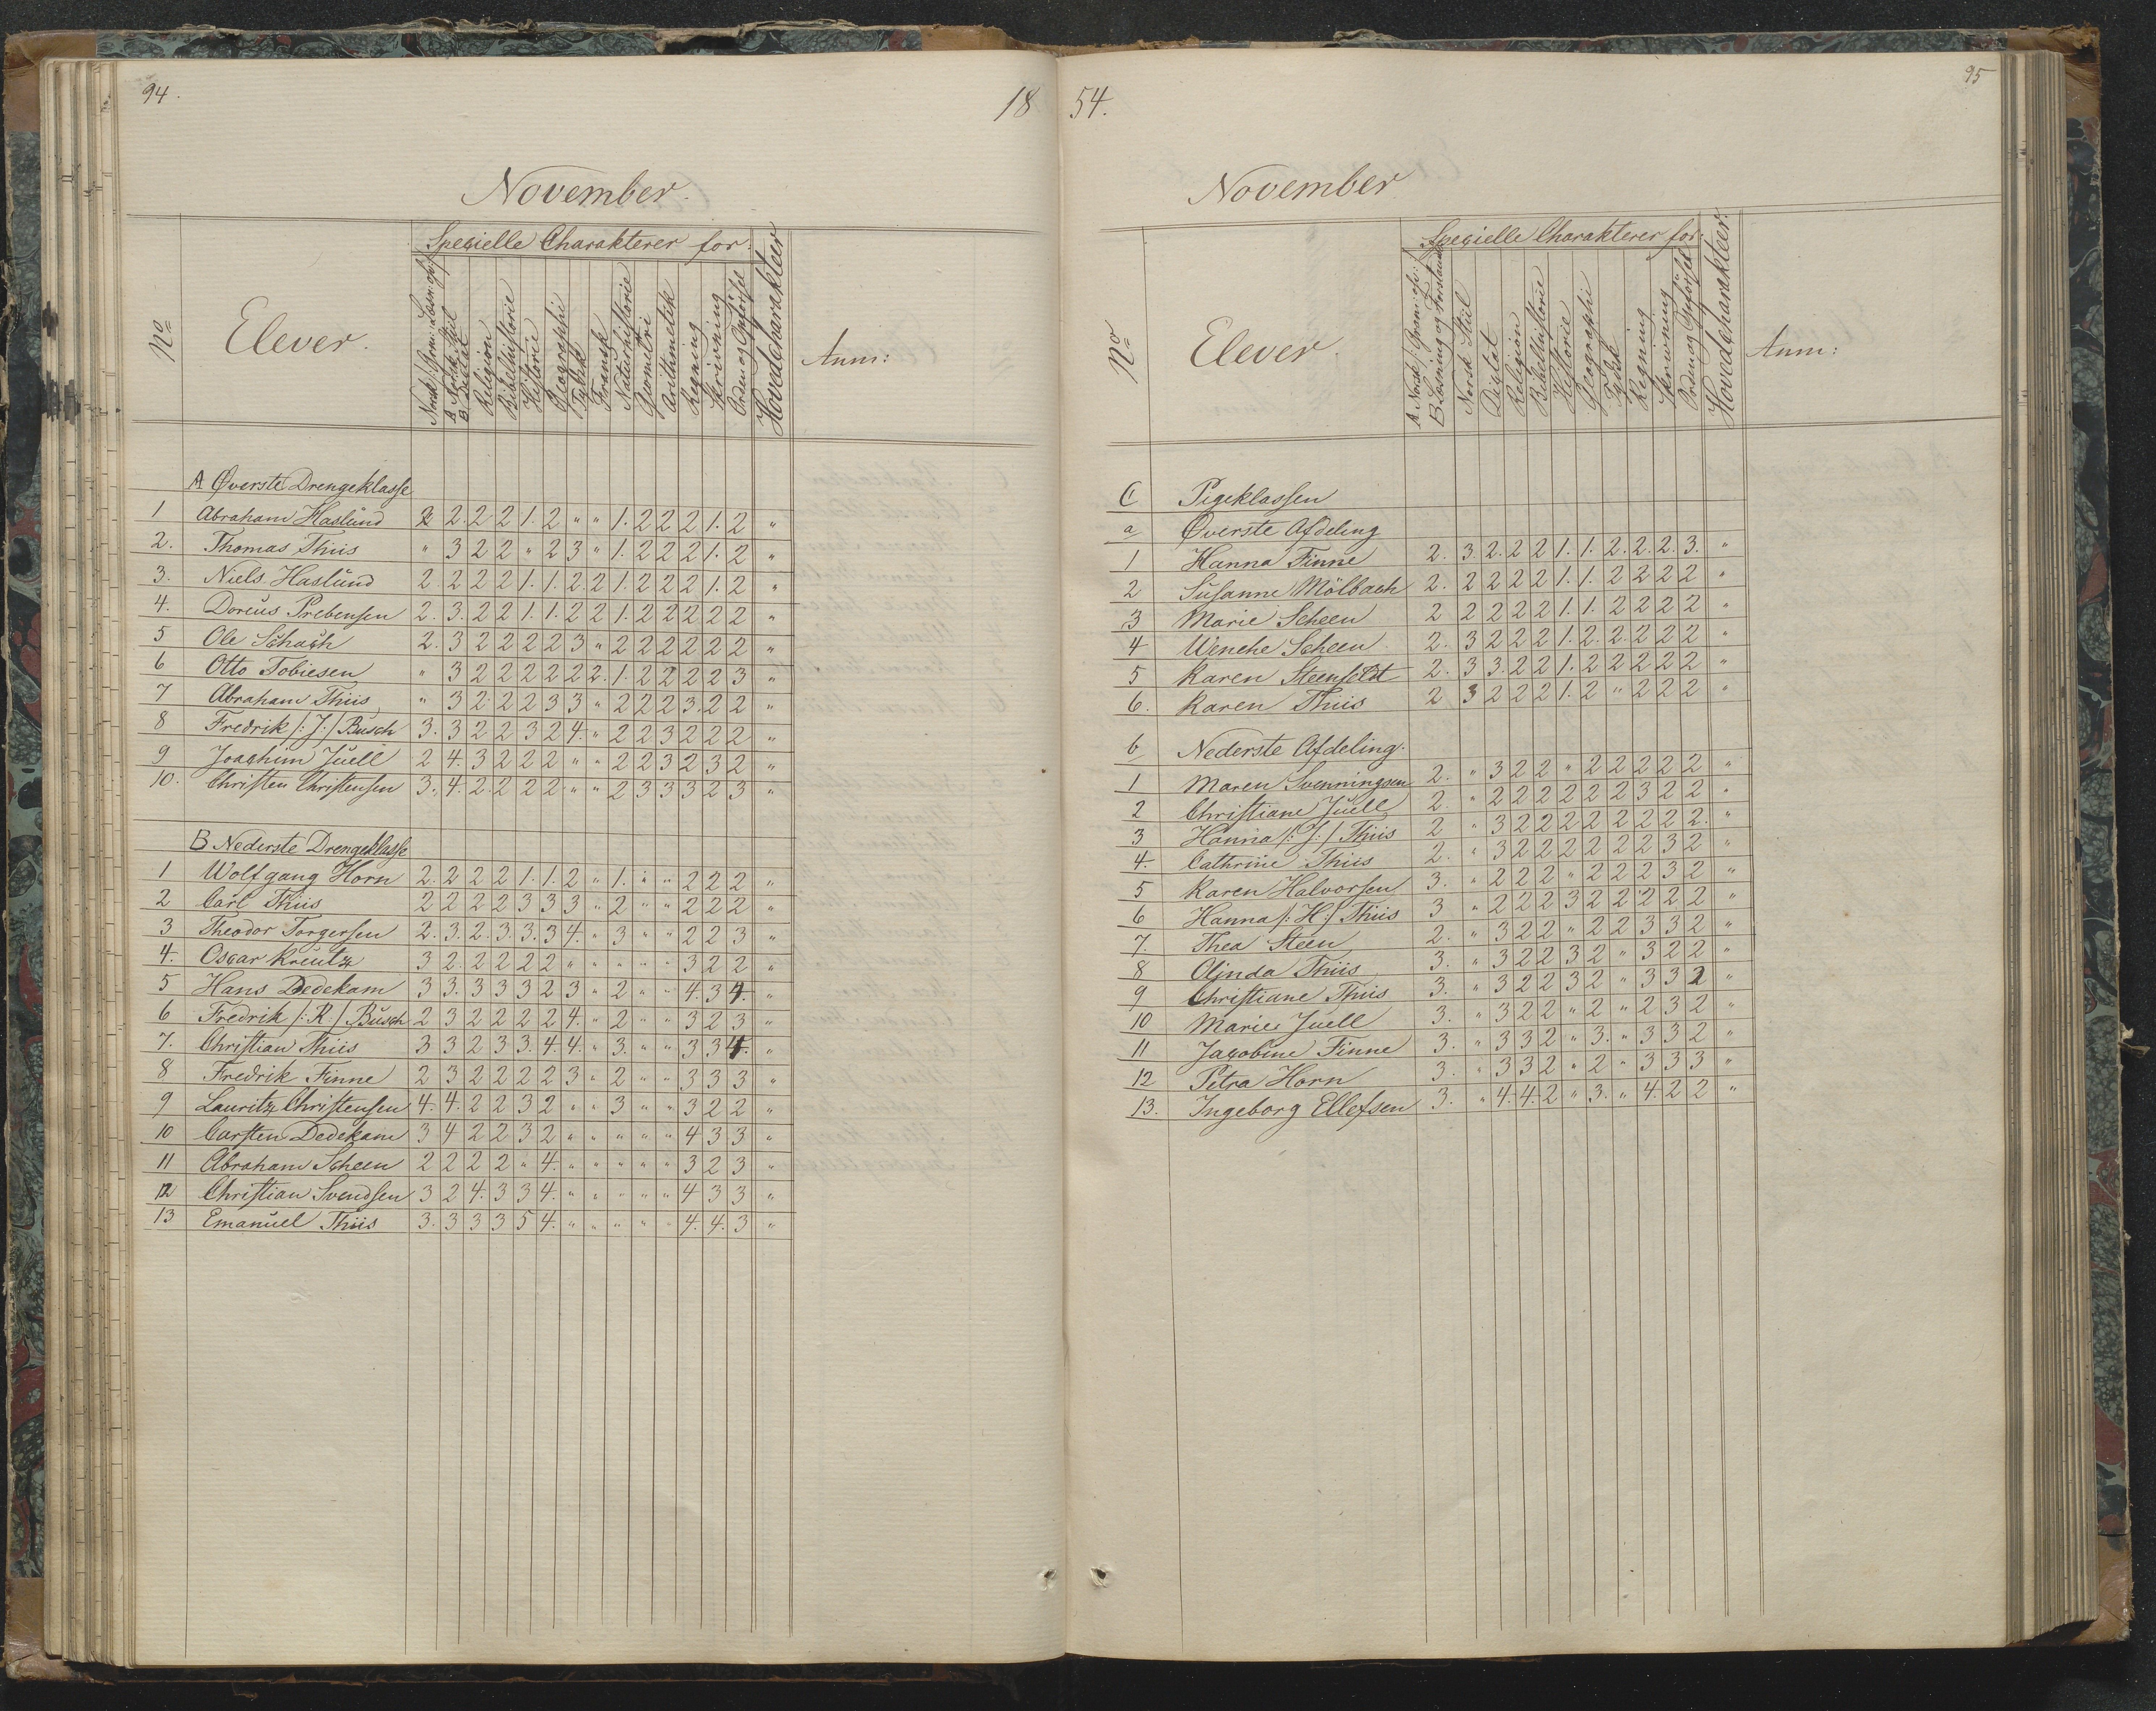 94.
18
November.
No
Elever.
Specielle Charakterer for:
Norsk
A Norsk Stiil
B Dictat
Religion
Bibelhistorie
Historie
Geographi
Tydsk
Fransk
Naturhistorie
Geometri
Arithmetik
Regning
Skrivning
Orden og Opførsel
Hovedcharakteer
Anm:
A Øverste Drengeklasse
1 Abraham Haslund 2 2. 2 2 1. 2 " " 1. 2 2 2 1. 2 "
2. Thomas Thiis " 3 2 2 " 2 3 " 1. 2 2 2 1. 2 "
3. Niels Haslund 2 2 2 2 1. 1. 2. 2 1. 2 2 2 1. 2 "
4. Doreus Prebensen 2. 3. 2 2 1. 1. 2 2 1. 2 2 2 2 2 "
5 Ole Schach 2. 3 2 2 2 2 3 " 2 2 2 2 2 2 "
6 Otto Tobiesen " 3 2 2 2 2 2 2. 1. 2 2 2 2 3 "
7 Abraham Thiis " 3 2 2 2 3 3 " 2 2 2 3. 2 2 "
8 Fredrik /: J:/ Busch 3. 3 2 2 3 2 4. " 2 2 3 2 2 2 "
9 Joachim Juell 2 4. 3 2 2 2 " " 2 2 3 2 3 2 "
10. Christen Christensen 3. 4. 2 2 2 2 " " 2 3 3 3 2 3 "
B Nederste Drengeklasse
1 Wolfgang Horn 2. 2 2 2 1. 1. 2 " 1. " " 2 2 2 "
2 Carl Thiis 2 2 2 2 3 3 3 " 2 " " 2 2 2 "
3 Theodor Torgersen 2. 3. 2. 3. 3. 3 4. " 3 " " 2 2 3 "
4. Oscar Kreutz 3 2. 2 2 2 2 " " " " " 3 2 2 "
5 Hans Dedekam 3 3. 3 3 3 2 3 " 2 " " 4. 3 4. "
6 Fredrik /: R / Busch 2 3 2 2 2 2 4. " 2 " " 3 2 3 "
7. Christian Thiis 3 3 2 3 3. 4. 4. " 3. " " 3 3 4. "
8 Fredrik Finne 2 3 2 2 2 2 3 " 2 " " 3 3 3 "
9 Lauritz Christensen 4. 4. 2 2 3 2 " " 3 " " 3 2 2 "
10 Carsten Dedekam 3 4 2 2 3 2 " " " " " 4 3 3 "
11 Abraham Scheen 2 2 2 2 " 4. " " " " " 3 2 3 "
12 Christian Svendsen 3 2 4. 3 3 4. " " " " " 4 3 3 "
13 Emanuel Thiis 3. 3 3 3 5 4. " " " " " 4. 4. 3 "
54.
95
November
No
Elever.
Specielle Charakterer for:
B Læsning og Forstand
Norsk Stiil
Dictat
Religion
Bibelhistorie
Historie
Geographi
Tydsk
Regning
Skrivning
Orden og Opførsel
Hovedcharakteer.
Anm:
C Pigeklassen
a Øverste Afdeling
1 Hanna Finne 2. 3 2. 2 2 1. 1. 2. 2. 2. 3. "
2 Susanne Mölbach 2. 2 2 2 2 1. 1. 2 2 2 2 "
3 Marie Scheen 2 2 2 2 2 1. 1. 2 2 2 2 "
4 Wenche Scheen 2. 3 2 2 2 1. 2. 2. 2 2 2 "
5 Karen Steenfeldt 2. 3 3. 2 2 1. 2 2 2 2 2 "
6. Karen Thiis 2 3 2 2 2 1. 2 " 2 2 2 "
b Nederste Afdeling.
1 Maren Svenningsen 2. " 3 2 2 " 2 2 2 2 2 "
2 Christiane Juell 2. " 2 2 2 2 2 2 3 2 2 "
3 Hanna /: J:/ Thiis 2 " 3 2 2 2 2 2 2 2 2. "
4. Cathrine Thiis 2. " 3 2 2 2 2 2 2 3 2 "
5 Karen Halvorsen 3. " 2 2 2 " 2 2 2 3 2 "
6 Hanna /: H:/ Thiis 3 " 2 2 2 3 2 2 2 2 2 "
7. Thea Steen 2. " 3 2 2 " 2 2 3 3 2 "
8 Olinda Thiis 3. " 3 2 2 3 2 " 3 2 2 "
9 Christiane Thiis 3. " 3 2 2 3 2 " 3 3 2 "
10 Marie Juell 3. " 3 2 2 " 2 " 2 3 2 "
11 Jacobine Finne 3. " 3 3 2 " 3. " 3 3 2 "
12 Petra Horn 3. " 3 3 2 " 2 " 3 3 3 "
13. Ingeborg Ellefsen 3. " 4. 4. 2 " 3. " 4. 2 2 "